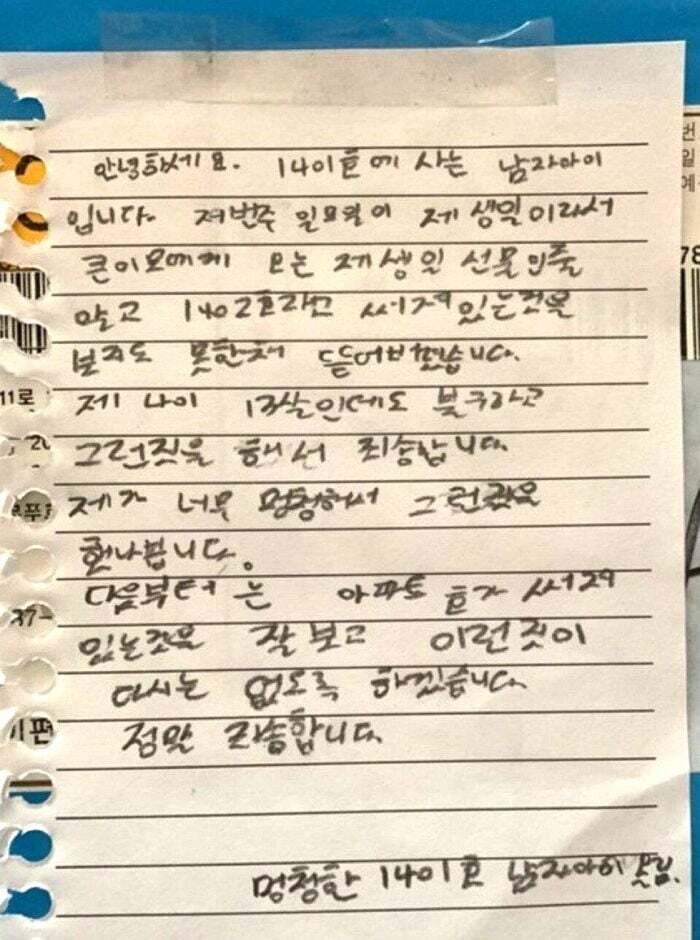 안녕하세요. 1401호에 사는 남자아이
입니다. 저번주 일요일이 제 생일이라서
큰이모에게 오는 제생일 선물인줄
알고 1402호라고 써져있는것을
보지도 못한채 뜯어버렸습니다.
제 나이 13살인데도 불구하고
그런짓을 해서 죄송합니다.
제가 너무 멍청해서 그런
다음부터는 아파트 호가 써져
있는것을 잘보고 이런짓이
다시는 없도록 하겠습니다.
정말 죄송합니다.
멍청한 1401호 남자아이 올림.
번
일
예
78
11로
20
37-
기편